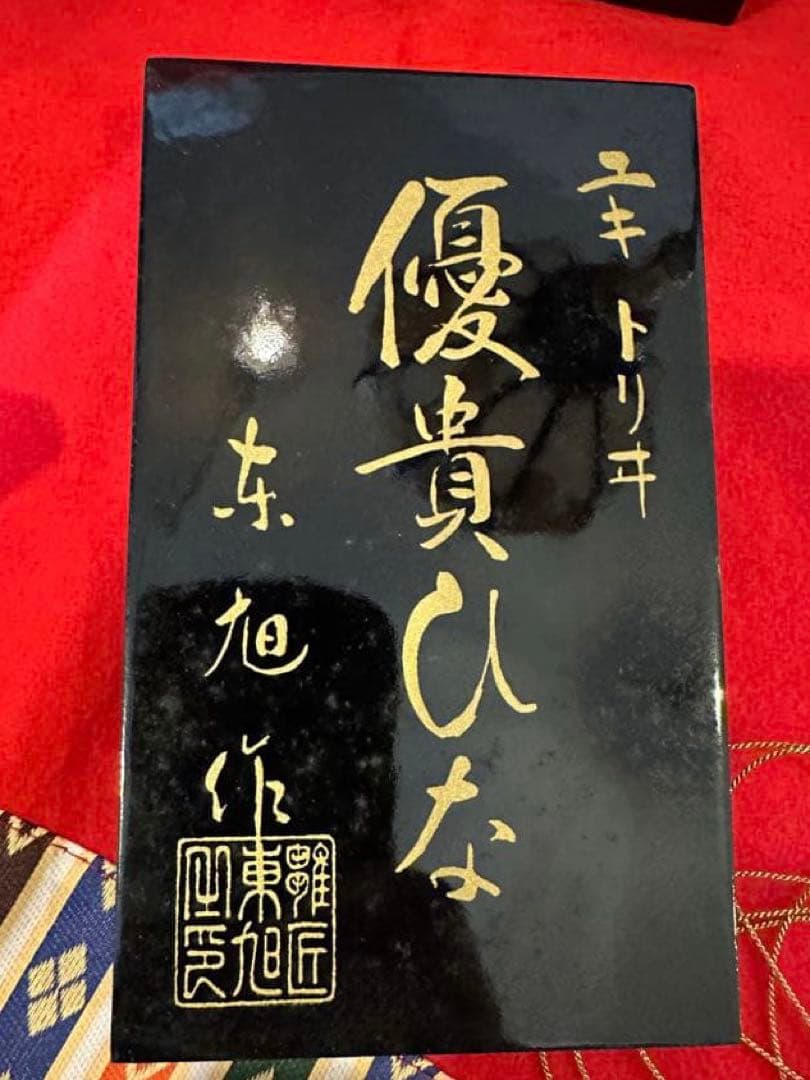 ユキ トリヰ
優貴ひな
东旭作
雛匠
東旭
之印